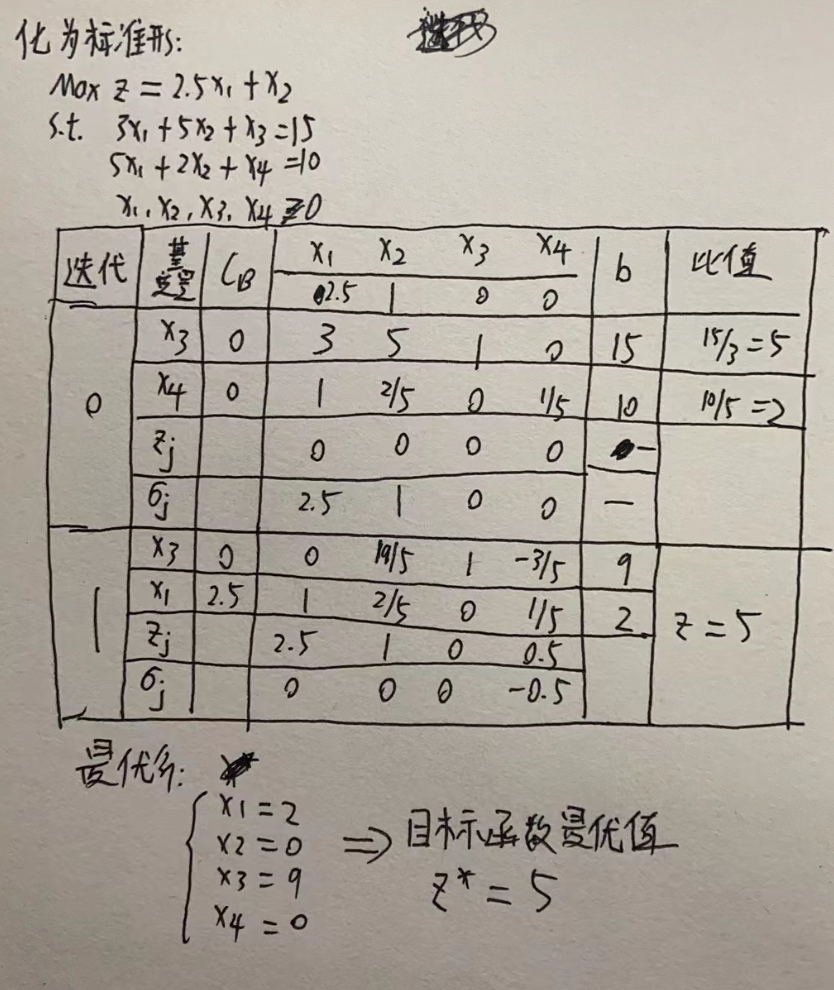 化为标准形:
Max z = 2.5x₁ + x₂
s.t. 3x₁ + 5x₂ + x₃ = 15
5x₁ + 2x₂ + x₄ = 10
x₁, x₂, x₃, x₄ ≥ 0
迭代 基变量 C_B x₁ x₂ x₃ x₄ b 比值
2.5 1 0 0
0 x₃ 0 3 5 1 0 15 15/3 = 5
x₄ 0 1 2/5 0 1/5 10 10/5 = 2
zj 0 0 0 0 —
σj 2.5 1 0 0 —
1 x₃ 0 0 19/5 1 -3/5 9
x₁ 2.5 1 2/5 0 1/5 2 z = 5
zj 2.5 1 0 0.5
σj 0 0 0 -0.5
最优解:
x₁ = 2
x₂ = 0 ⇒ 目标函数最优值
x₃ = 9 z* = 5
x₄ = 0